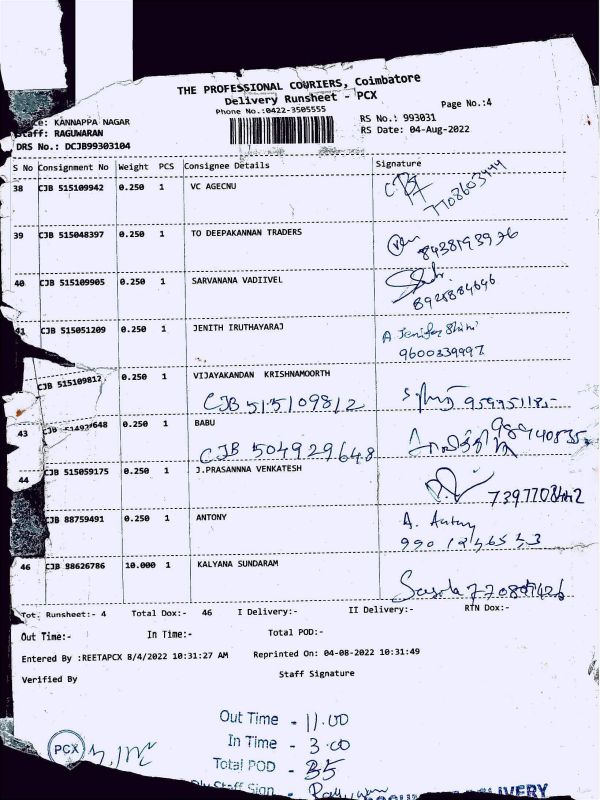 THE PROFESSIONAL COURIERS, Coimbatore
Delivery Runsheet - PCX
Phone No.:0422-3505555
Page No.:4
KANNAPPA NAGAR
RS No.: 993031
Staff: RAGUWARAN
RS Date: 04-Aug-2022
DRS No.: DCJB99303104
S No Consignment No Weight PCS Consignee Details Signature
38 CJB 515109942 0.250 1 VC AGECNU
7708603444
39 CJB 515048397 0.250 1 TO DEEPAKANNAN TRADERS
8438193976
40 CJB 515109905 0.250 1 SARVANANA VADIIVEL
8928884646
41 CJB 515051209 0.250 1 JENITH IRUTHAYARAJ
9600339997
CJB 515109812 0.250 1 VIJAYAKANDAN KRISHNAMOORTH
CJB 515109812
43 0.250 1 BABU
CJB 504929648
44 CJB 515059175 0.250 1 J.PRASANNNA VENKATESH
CJB 88759491 0.250 1 ANTONY
A. Antony
46 CJB 98626786 10.000 1 KALYANA SUNDARAM
Tot. Runsheet:- 4 Total Dox:- 46 I Delivery:- II Delivery:- RTN Dox:-
Out Time:- In Time:- Total POD:-
Entered By :REETAPCX 8/4/2022 10:31:27 AM Reprinted On: 04-08-2022 10:31:49
Verified By Staff Signature
Out Time - 11.00
In Time - 3.00
PCX
Total POD - 35
Staff Sign -
DELIVERY